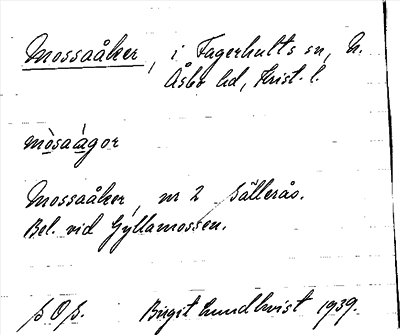 Mossaåker, i Fagerhults sn, N.
Åsbo hd, Krist. l.
mòsaágor
Mossaåker, nr 2 Sällerås.
Bel. vid Gyllamossen.
p Op. Birgit Lundkvist 1939.